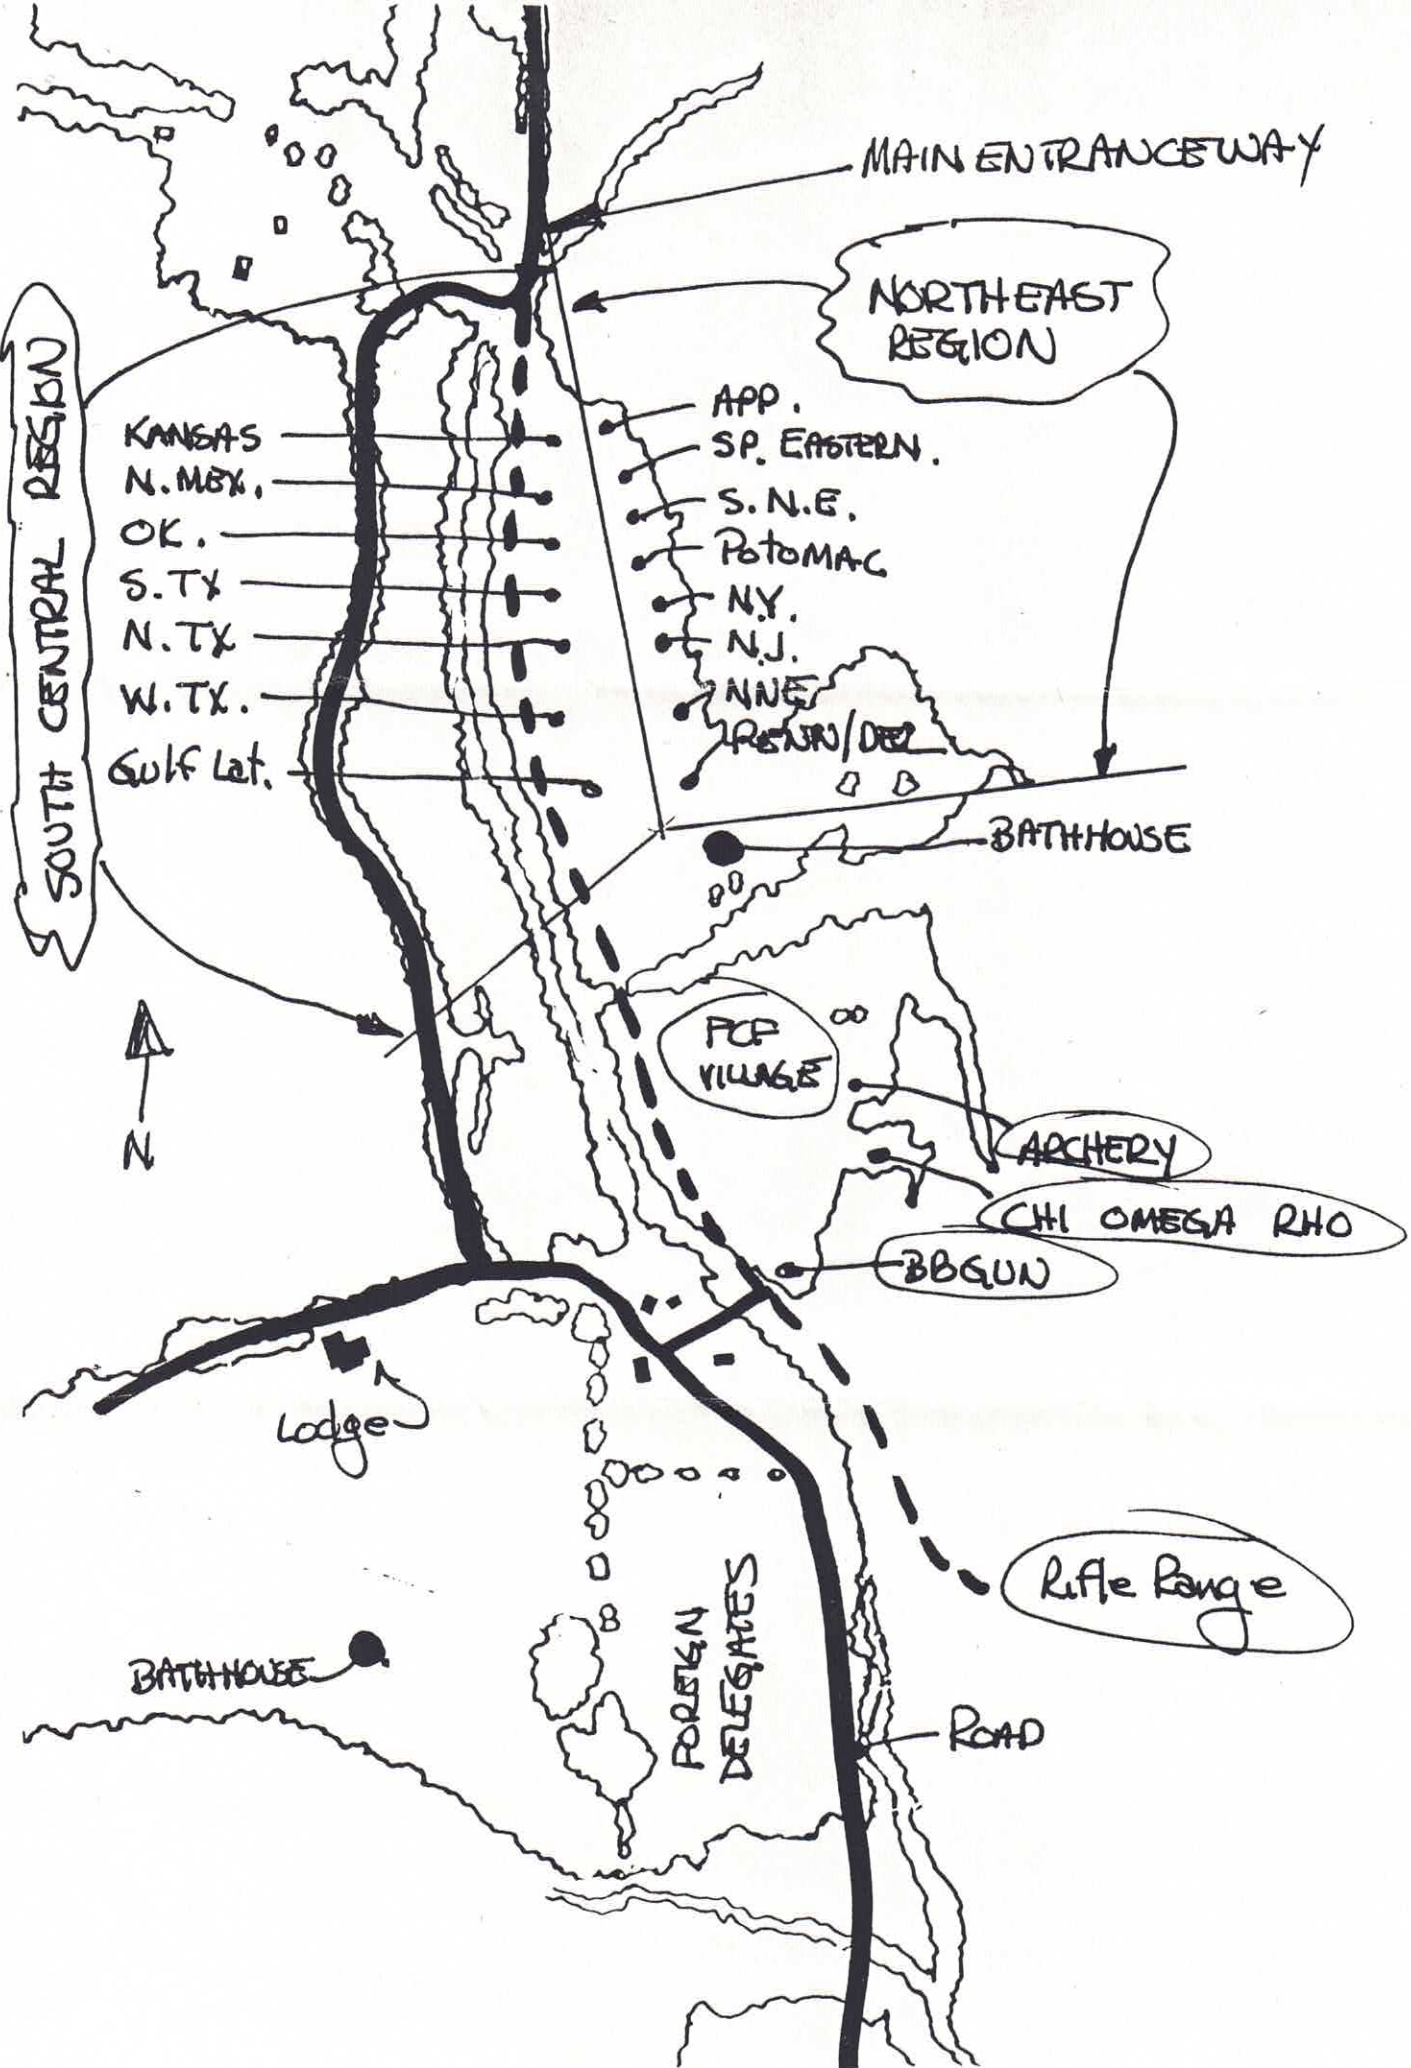 MAIN ENTRANCEWAY
NORTHEAST
REGION
SOUTH CENTRAL REGION
KANSAS
N. MEX.
OK.
S. TX
N. TX
W. TX.
Gulf Lat.
APP.
SP. EASTERN.
S.N.E.
POTOMAC
N.Y.
N.J.
NNE
PENN/DEL
BATHHOUSE
N
PCP
VILLAGE
ARCHERY
CHI OMEGA RHO
BBGUN
Lodge
Rifle Range
BATHHOUSE
FOREIGN
DELEGATES
ROAD